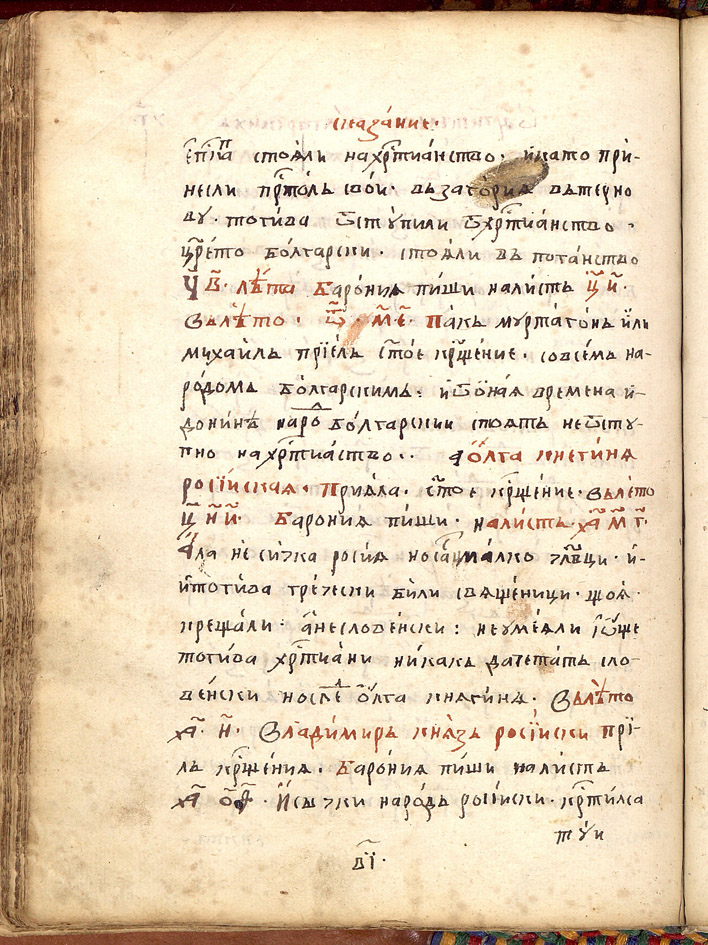 сказа́нїе·
є҆пⷭ҇кпа стоѧли нахрⷭ҇тиа́нство· и҆като при-
несли прⷭ҇толь свои҆· въ заго́риа въ терно
ву· потива ѿстꙋпили ѿхрⷭ҇тиа́нство ·
црⷭ҇тво бо́лгарски· стоѧли въ поганство
чв҃· лѣ́та Баро́ниа пи́ши налистъ ци҃·
Въ лѣто· ѿ҃·м҃е· Пакъ муртаго́нъ и҆ли
михаи́лъ прїе́лъ ст҃ое крⷭ҇щение· совсемь на-
ро́домъ бо́лгарскимъ· и҆ѿѻ҆наѧ времена и҆-
дони́нѣ наро́ⷣ бо́лгарскии стоѧтъ неѿстꙋ-
пно нахрⷭ҇тиаство· Ѻ҆лга кнеги́нѧ
росїиская· Приѧла· ст҃ое крⷭ҇щение· въ лѣто
ц҃н҃и҃· Баро́ниѧ пи́ши· налистъ· ҂а҃м҃г҃·
Ала не си́чка росиѧ но са́мц ма́лко члвⷦ҇ци· и҆-
и҆потива гре́чески били свѧще́ници· що ѧ
креща́ли· а҆несловенски: неуме́ѧли і҆ѡ҆ще
потива хрⷭ҇тиа́ни никакъ да че́татъ сло-
ве́нски носле́ⷣ ѻ҆́лга кнѧги́нѧ· Въ лѣ̀то
҂а҃·н҃· Влади́миръ кнѧ̀зь росїиски прї-
лъ крⷭ҇ще́ниѧ· Баро́ниѧ пи́ши налистъ
҂а҃ о҃д҃· И҆сы́чки наро́дъ росїиски· крⷭ҇тилсѧ
туи
в҃ї·